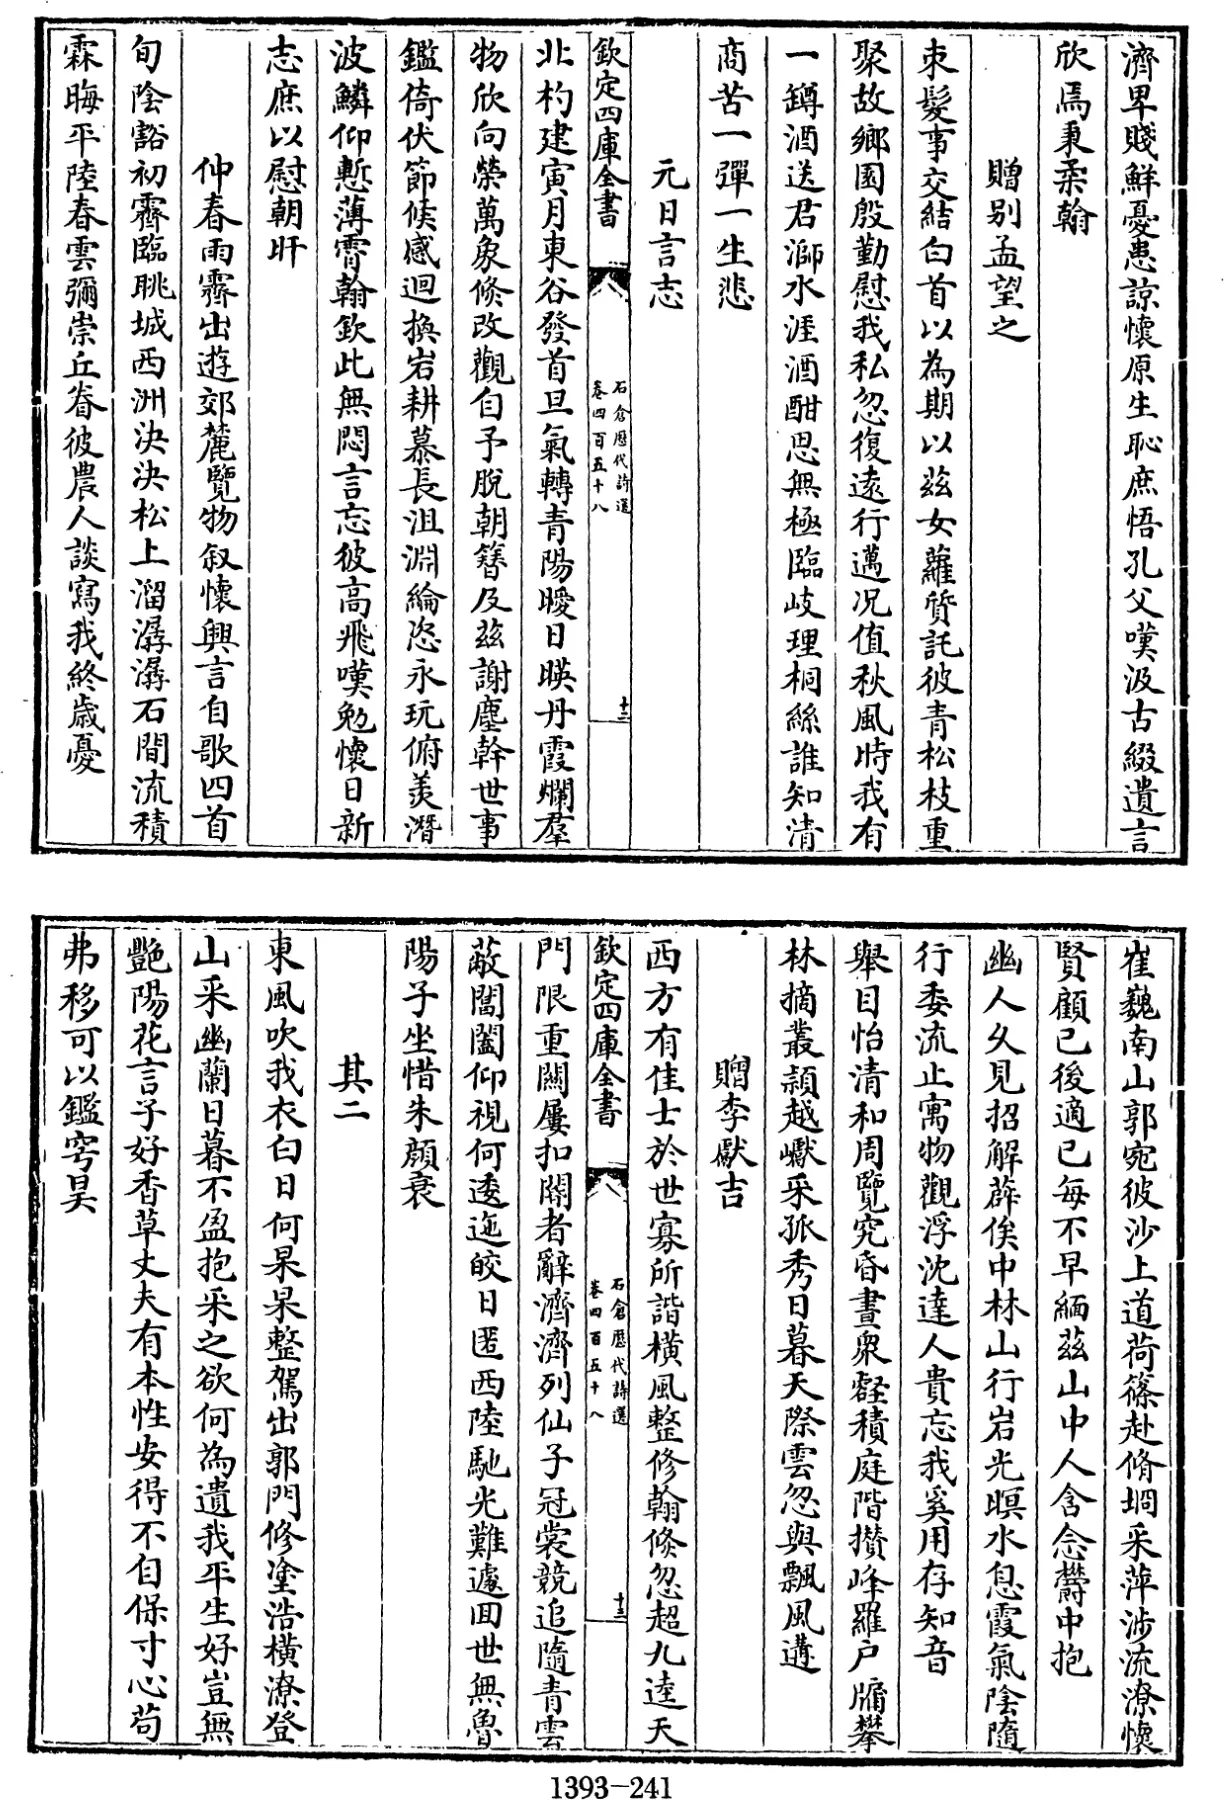 濟卑賤鮮憂患諒懷原生恥庶悟孔父嘆汲古綴遺言
欣焉秉柔翰
贈别孟望之
束髮事交結白首以為期以兹女蘿質託彼青松枝重
聚故鄉園殷勤慰我私忽復逺行邁况值秋風時我有
一鐏酒送君溮水涯酒酣思無極臨岐理桐絲誰知清
商苦一彈一生悲
元日言志
欽定四庫全書
石倉歴代詩選
卷四百五十八
十三
北杓建寅月東谷發首旦氣轉青陽曖日暎丹霞爛羣
物欣向榮萬象倐改觀自予脱朝簪及兹謝塵幹世事
鑑倚伏節候感迴換岩耕慕長沮淵綸恣永玩俯羡潛
波鱗仰慙薄霄翰欽此無悶言忘彼高飛嘆勉懷日新
志庶以慰朝旰
仲春雨霽出遊郊麓覽物叙懷興言自歌四首
旬陰豁初霽臨眺城西洲决决松上溜潺潺石間流積
霖晦平陸春雲彌崇丘眷彼農人談寫我終歲憂
崔巍南山郭宛彼沙上道荷篠赴脩坰采萍涉流潦懷
賢顧已後適已每不早緬兹山中人含念欝中抱
幽人久見招解薜俟中林山行岩光暝水息霞氣陰隨
行委流止寓物觀浮沈達人貴忘我奚用存知音
舉目怡清和周覽究昏晝衆壑積庭階攅峰羅户牖攀
林摘叢頴越巘采孤秀日暮天際雲忽與飄風遘
贈李獻吉
西方有佳士於世寡所諧横風整修翰倐忽超九逵天
欽定四庫全書
石倉歴代詩選
卷四百五十八
十三
門限重闗屢扣閽者辭濟濟列仙子冠裳競追隨青雲
蔽閶闔仰視何逶迤皎日匿西陸馳光難遽回世無魯
陽子坐惜朱顔衰
其二
東風吹我衣白日何杲杲整駕出郭門修塗浩横潦登
山采幽蘭日暮不盈抱采之欲何為遺我平生好豈無
艷陽花言子好香草丈夫有本性安得不自保寸心茍
弗移可以鑑穹昊
1393-241